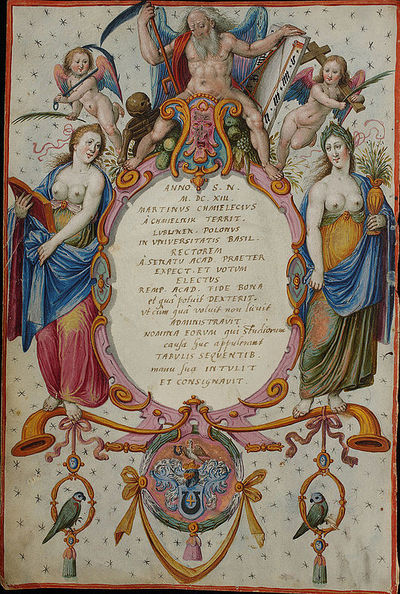 ANNO S. N.
M. DC. XIII.
MARTINUS CHMIELECIUS
À CHMIELNIK TERRIT.
LUBLINEN. POLONUS
IN UNIVERSITATIS BASIL.
RECTOREM
À SENATU ACAD. PRAETER
EXPECT. ET VOTUM
ELECTUS
REMP. ACAD. FIDE BONA
et quâ potuit DEXTERIT.
utcum quâ voluit non licuit
ADMINISTRAVIT.
NOMINA EORUM qui Studiorum
causa huc appulerant
TABULIS SEQUENTIB.
manu sua INTULIT
ET CONSIGNAVIT.